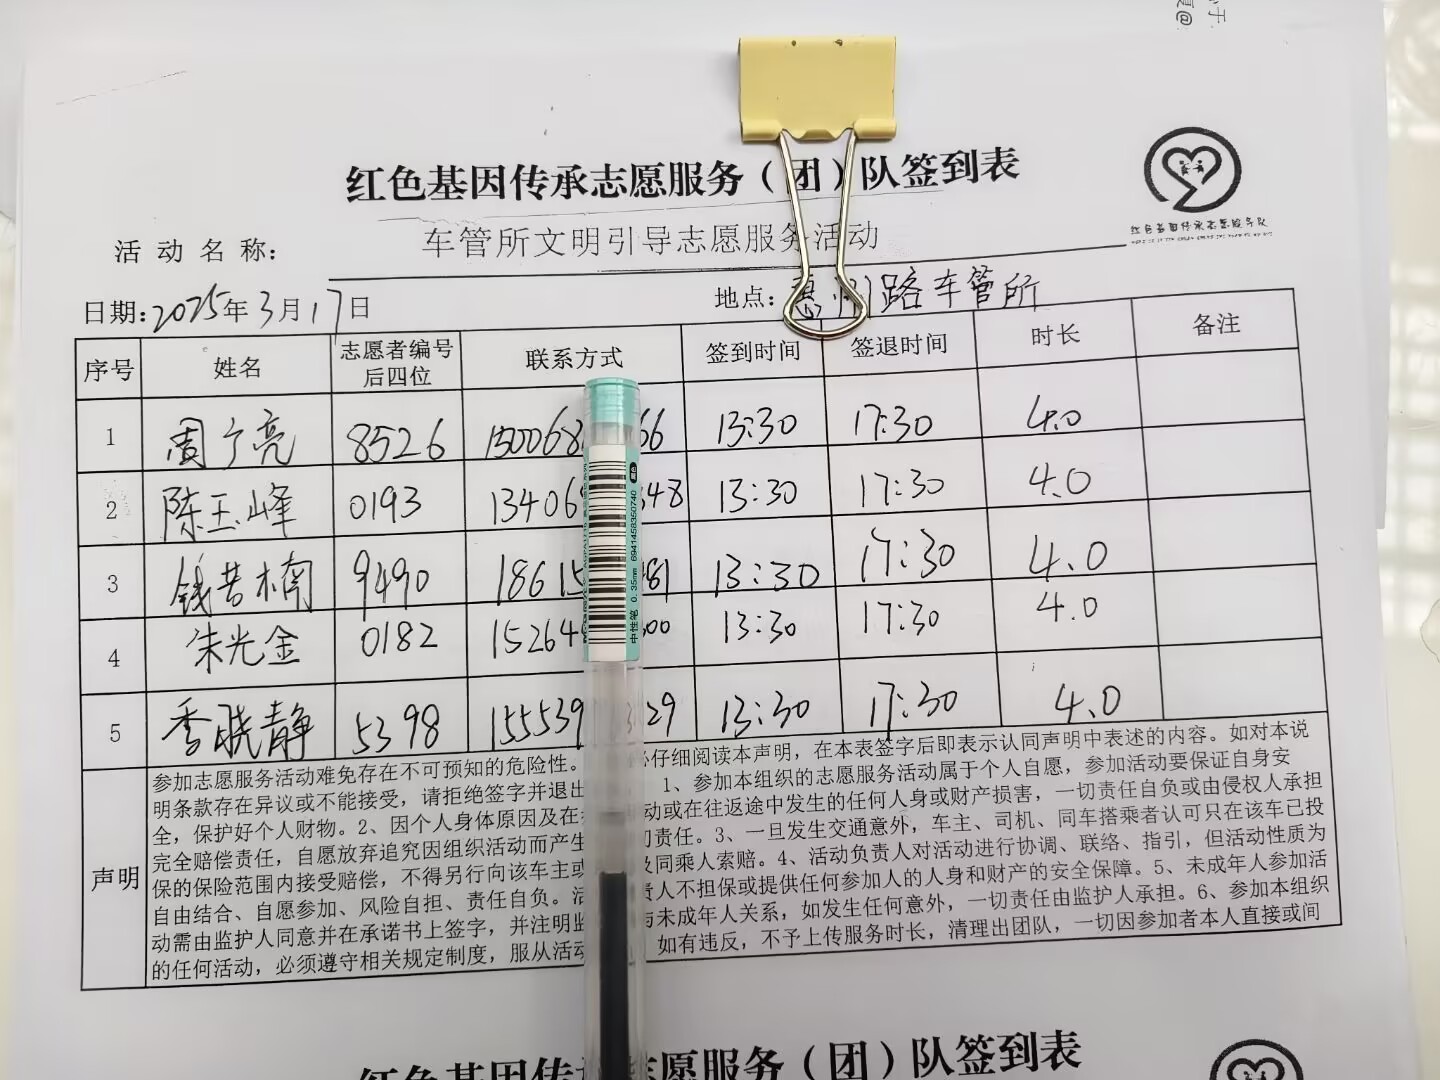 红色基因传承志愿服务（团）队签到表
红色基因传承志愿服务队
活动名称： 车管所文明引导志愿服务活动
日期：2025年3月17日 地点： 路车管所
序号 姓名 志愿者编号后四位 联系方式 签到时间 签退时间 时长 备注
1 周宁亮 8526 150068 66 13:30 17:30 4.0
2 陈玉峰 0193 13406 48 13:30 17:30 4.0
3 钱昔楠 9490 18615 81 13:30 17:30 4.0
4 朱光金 0182 15264 00 13:30 17:30 4.0
5 季晓静 5398 155539 29 13:30 17:30 4.0
声明
参加志愿服务活动难免存在不可预知的危险性。 仔细阅读本声明，在本表签字后即表示认同声明中表述的内容。如对本说
明条款存在异议或不能接受，请拒绝签字并退出 1、参加本组织的志愿服务活动属于个人自愿，参加活动要保证自身安
全，保护好个人财物。2、因个人身体原因及在 动或在往返途中发生的任何人身或财产损害，一切责任自负或由侵权人承担
完全赔偿责任，自愿放弃追究因组织活动而产生 责任。3、一旦发生交通意外，车主、司机、同车搭乘者认可只在该车已投
保的保险范围内接受赔偿，不得另行向该车主或 及同乘人索赔。4、活动负责人对活动进行协调、联络、指引，但活动性质为
自由结合、自愿参加、风险自担、责任自负。 责人不担保或提供任何参加人的人身和财产的安全保障。5、未成年人参加活
动需由监护人同意并在承诺书上签字，并注明监 与未成年人关系，如发生任何意外，一切责任由监护人承担。6、参加本组织
的任何活动，必须遵守相关规定制度，服从活动 如有违反，不予上传服务时长，清理出团队，一切因参加者本人直接或间
中性笔 0.35mm 6941458350740
红色基因传 志愿服务（团）队签到表